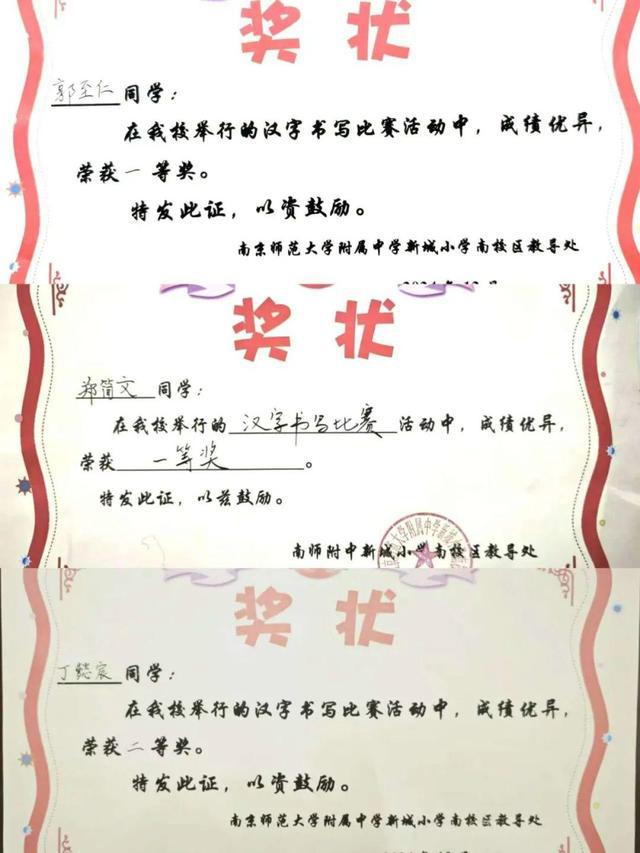 奖状
郭至仁同学：
在我校举行的汉字书写比赛活动中，成绩优异，
荣获一等奖。
特发此证，以资鼓励。
南京师范大学附属中学新城小学南校区教导处
奖状
郑简文同学：
在我校举行的汉字书写比赛活动中，成绩优异，
荣获一等奖。
特发此证，以兹鼓励。
南师附中新城小学南校区教导处
奖状
丁懿宸同学：
在我校举行的汉字书写比赛活动中，成绩优异，
荣获二等奖。
特发此证，以资鼓励。
南京师范大学附属中学新城小学南校区教导处